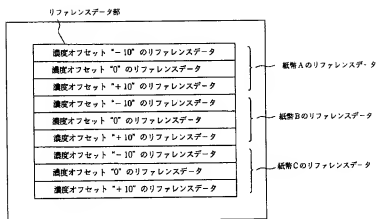 リファレンスデータ部
濃度オフセット"－10"のリファレンスデータ
濃度オフセット"0"のリファレンスデータ
濃度オフセット"＋10"のリファレンスデータ
紙幣Aのリファレンスデータ
濃度オフセット"－10"のリファレンスデータ
濃度オフセット"0"のリファレンスデータ
濃度オフセット"＋10"のリファレンスデータ
紙幣Bのリファレンスデータ
濃度オフセット"－10"のリファレンスデータ
濃度オフセット"0"のリファレンスデータ
濃度オフセット"＋10"のリファレンスデータ
紙幣Cのリファレンスデータ